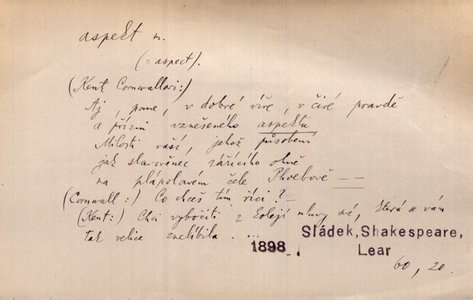 aspekt m.
(= aspect).
(Kent Cornwallovi:)
Aj, pane, v dobré víře, v čiré pravdě
a přízni vznešeného aspektu
Milosti vaší, jehož působení
jak sla věnec zářícího ohně
na plápolavém čele Phoebově --
(Cornwall:) Co chceš tím říci? -
(Kent:) Chci vybočiti z kolejí mluvy své, která se vám
tak velice znelíbila. ...
1898 Sládek, Shakespeare,
Lear
60, 20.